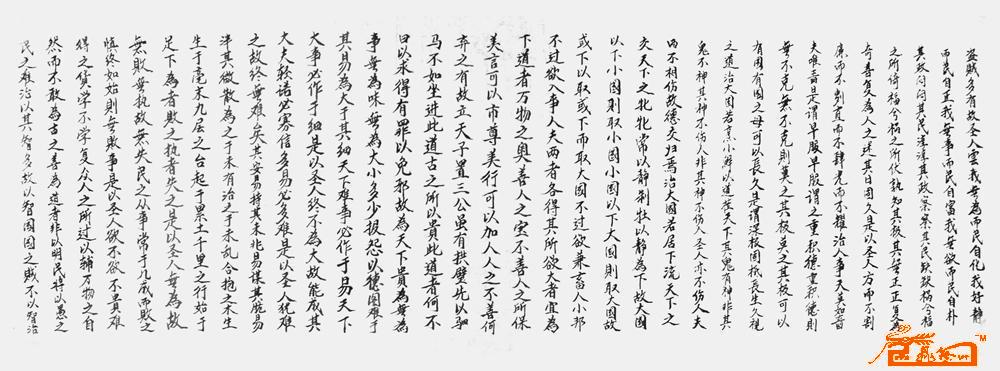 盗賊多有故圣人雲我無為而民自化我好静
而民自正我無事而民自富我無欲而民自朴
其政闷闷其民淳淳其政察察其民缺缺祸兮福
之所倚福兮祸之所伏孰知其极其無正正复為
奇善复為人之迷其日固久是以圣人方而不割
廉而不刿直而不肆光而不耀治人事天莫如啬
夫唯啬是谓早服早服谓之重积德重积德則
無不克無不克則莫之其极莫之其极可以
有國有國之母可以長久是谓深根固柢長生久視
之道治大國若烹小鮮以道莅天下其鬼有神非其
鬼不神其神不伤人非其神不伤人圣人亦不伤人夫
两不相伤故德交归焉治大國者居下流天下之
交天下之牝牝常以静刺牡以静為下故大國
以下小國則取小國小國以下大國則取大國故
或下以取或下而取大國不过欲兼畜人小邦
不过欲入事人夫两者各得其所欲大者宜為
下道者万物之奥善人之宝不善人之所保
美言可以市尊美行可以加人人之不善何
弃之有故立天子置三公虽有拱壁先以驷
马不如坐进此道古之所以贵此道者何不
曰以求得有罪以免邪故為天下貴為無為
事無為味無為大小多少报怨以德图难于
其易為大于其细天下难事必作于易天下
大事必作于细是以圣人终不為大故能成其
大夫轻诺必寡信多易必多难是以圣人犹难
之故终無难矣其安易持其未兆易谋其脆易
泮其微散為之于未有治之于未乱合抱之木生
生于毫末九层之台起于累土千里之行始于
足下為者敗之执者失之是以圣人無為故
無敗無执故無失民之从事常于几成而敗之
慎终如始則無敗事是以圣人欲不欲不贵难
得之货学不学复众人之所过以辅万物之自
然而不敢為古之善為道者非以明民将以愚之
民之难治以其智多故以智國國之賊不以智治